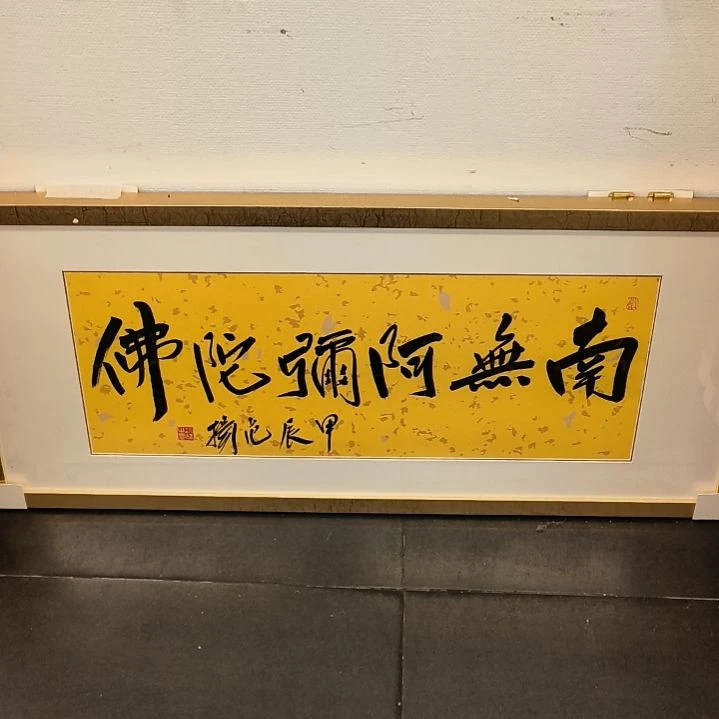 南無阿彌陀佛
甲辰